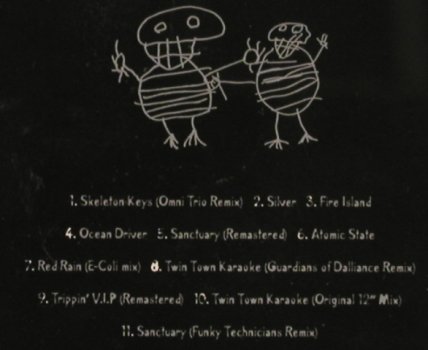 1. Skeleton Keys (Omni Trio Remix) 2. Silver 3. Fire Island
4. Ocean Driver 5. Sanctuary (Remastered) 6. Atomic State
7. Red Rain (E-Coli mix) 8. Twin Town Karaoke (Guardians of Dalliance Remix)
9. Trippin' V.I.P (Remastered) 10. Twin Town Karaoke (Original 12" Mix)
11. Sanctuary (Funky Technicians Remix)